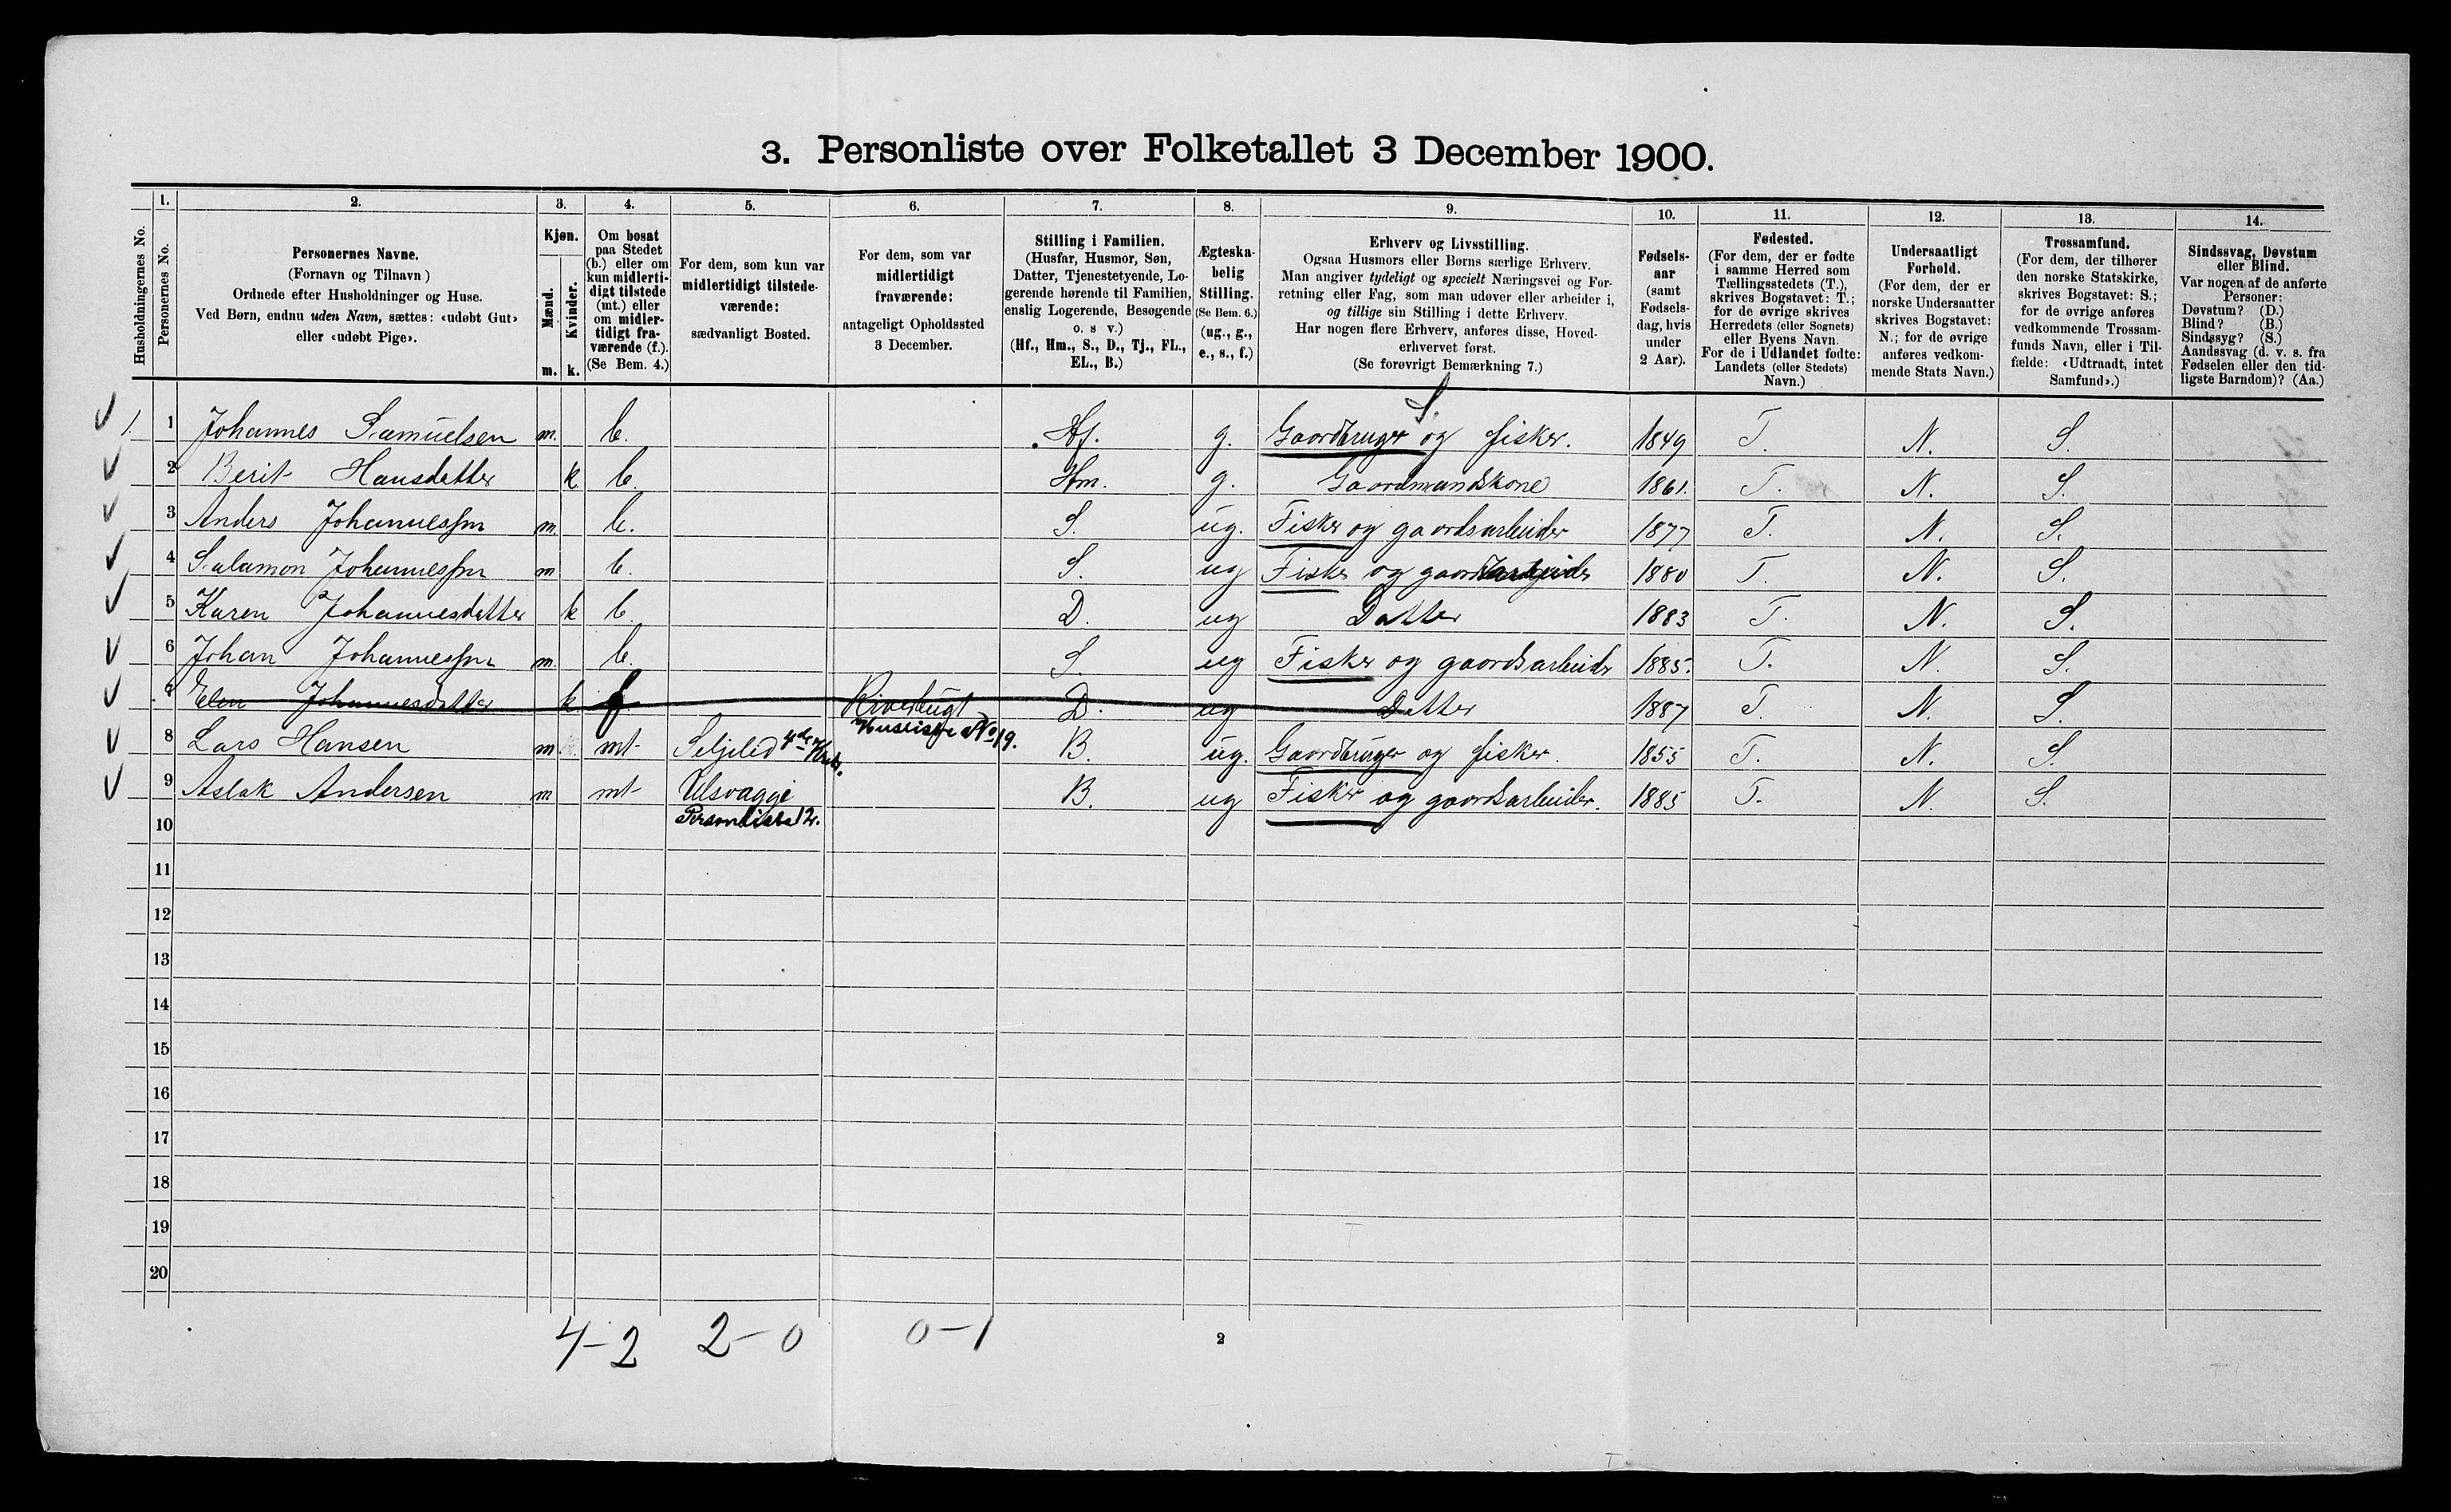 3. Personliste over Folketallet 3 December 1900.
Husholdningernes No.
1.
Personernes No.
2.
Personernes Navne.
(Fornavn og Tilnavn)
Ordnede efter Husholdninger og Huse.
Ved Børn, endnu uden Navn, sættes: «udøbt Gut»
eller «udøbt Pige».
3.
Kjøn.
Mænd.
Kvinder.
m. k.
4.
Om bosat
paa Stedet
(b.) eller om
kun midlerti-
digt tilstede
(mt.) eller
om midler-
tidigt fra-
værende (f.).
(Se Bem. 4.)
5.
For dem, som kun var
midlertidigt tilstede-
værende:
sædvanligt Bosted.
6.
For dem, som var
midlertidigt
fraværende:
antageligt Opholdssted
3 December.
7.
Stilling i Familien.
(Husfar, Husmor, Søn,
Datter, Tjenestetyende, Lo-
gerende hørende til Familien,
enslig Logerende, Besøgende
o. s v.)
(Hf., Hm., S., D., Tj., FL.,
EL., B.)
8.
Ægteska-
belig
Stilling.
(Se Bem. 6.)
(ug., g.,
e., s., f.)
9.
Erhverv og Livsstilling.
Ogsaa Husmors eller Børns særlige Erhverv.
Man angiver tydeligt og specielt Næringsvei og For-
retning eller Fag, som man udøver eller arbeider i,
og tillige sin Stilling i dette Erhverv.
Har nogen flere Erhverv, anføres disse, Hoved-
erhvervet først.
(Se forøvrigt Bemærkning 7.)
10.
Fødsels-
aar
(samt
Fødsels-
dag, hvis
under
2 Aar).
11.
Fødested.
(For dem, der er fødte
i samme Herred som
Tællingsstedets (T.),
skrives Bogstavet: T.;
for de øvrige skrives
Herredets (eller Sognets)
eller Byens Navn.
For de i Udlandet fødte:
Landets (eller Stedets)
Navn.)
12.
Undersaatligt
Forhold.
(For dem, der er
norske Undersaatter
skrives Bogstavet:
N.; for de øvrige
anføres vedkom-
mende Stats Navn.)
13.
Trossamfund.
(For dem, der tilhører
den norske Statskirke,
skrives Bogstavet: S.;
for de øvrige anføres
vedkommende Trossam-
funds Navn, eller i Til-
fælde: «Udtraadt, intet
Samfund».)
14.
Sindssvag, Døvstum
eller Blind.
Var nogen af de anførte
Personer:
Døvstum? (D.)
Blind? (B.)
Sindssyg? (S.)
Aandssvag (d. v. s. fra
Fødselen eller den tid-
ligste Barndom)? (Aa.)
S.
1. 1 Johannes Samuelsen m. b. Hf. g. Gaardbruger og fisker. 1849 T. N. S.
2 Berit Hansdatter k b. Hm. g. Gaardmandskone 1861. T. N. S.
3 Anders Johannessen m. b. S. ug. Fisker og gaardsarbeider 1877 T. N. S.
4 Salamon Johannessen m b. S. ug Fisker og gaardsarbeider 1880 T. N. S.
5 Karen Johannesdatter k b D. ug Datter 1883 T. N. S.
6 Johan Johannessen m. b. S. ug Fisker og gaardsarbeider 1885. T. N. S.
7 Elen Johannesdatter k. f Riverbugt D. ug Datter 1887 T. N. S.
Husliste No 19.
8 Lars Hansen m. mt Seljelid 4de Kreds. B. ug. Gaardbruger og fisker. 1855 T. N. S.
9 Aslak Andersen m mt Ulsvaggi B. ug Fisker og gaardsarbeider. 1885 T. N. S.
Personliste 12.
10
11
12
13
14
15
16
17
18
19
20
4-2 2-0 0-1
2